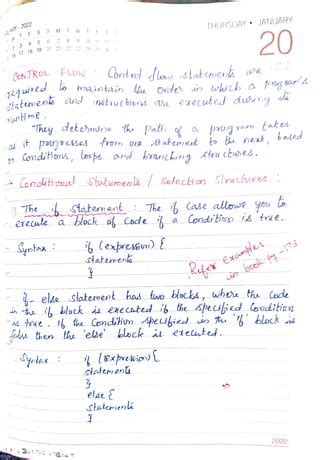 THURSDAY • JANUARY
20
CONTROL FLOW : Control flow statements are
required to maintain the order in which a program's
statements and instructions are executed during its
runtime.
They determine the path of a program takes
as it progresses from one statement to the next, based
on conditions, loops and branching structures.
Conditional Statements / Selection Structures :
The if statement : The if case allows you to
execute a block of code if a condition is true.
Syntax : if (expression) {
statements
}
Refer examples
in book pg - 173
if - else statement has two blocks, where the code
in the if block is executed if the specified condition
is true. If the condition specified in the 'if' block is
false then the 'else' block is executed.
Syntax : if (expression) {
statements
}
else {
statements
}
2022